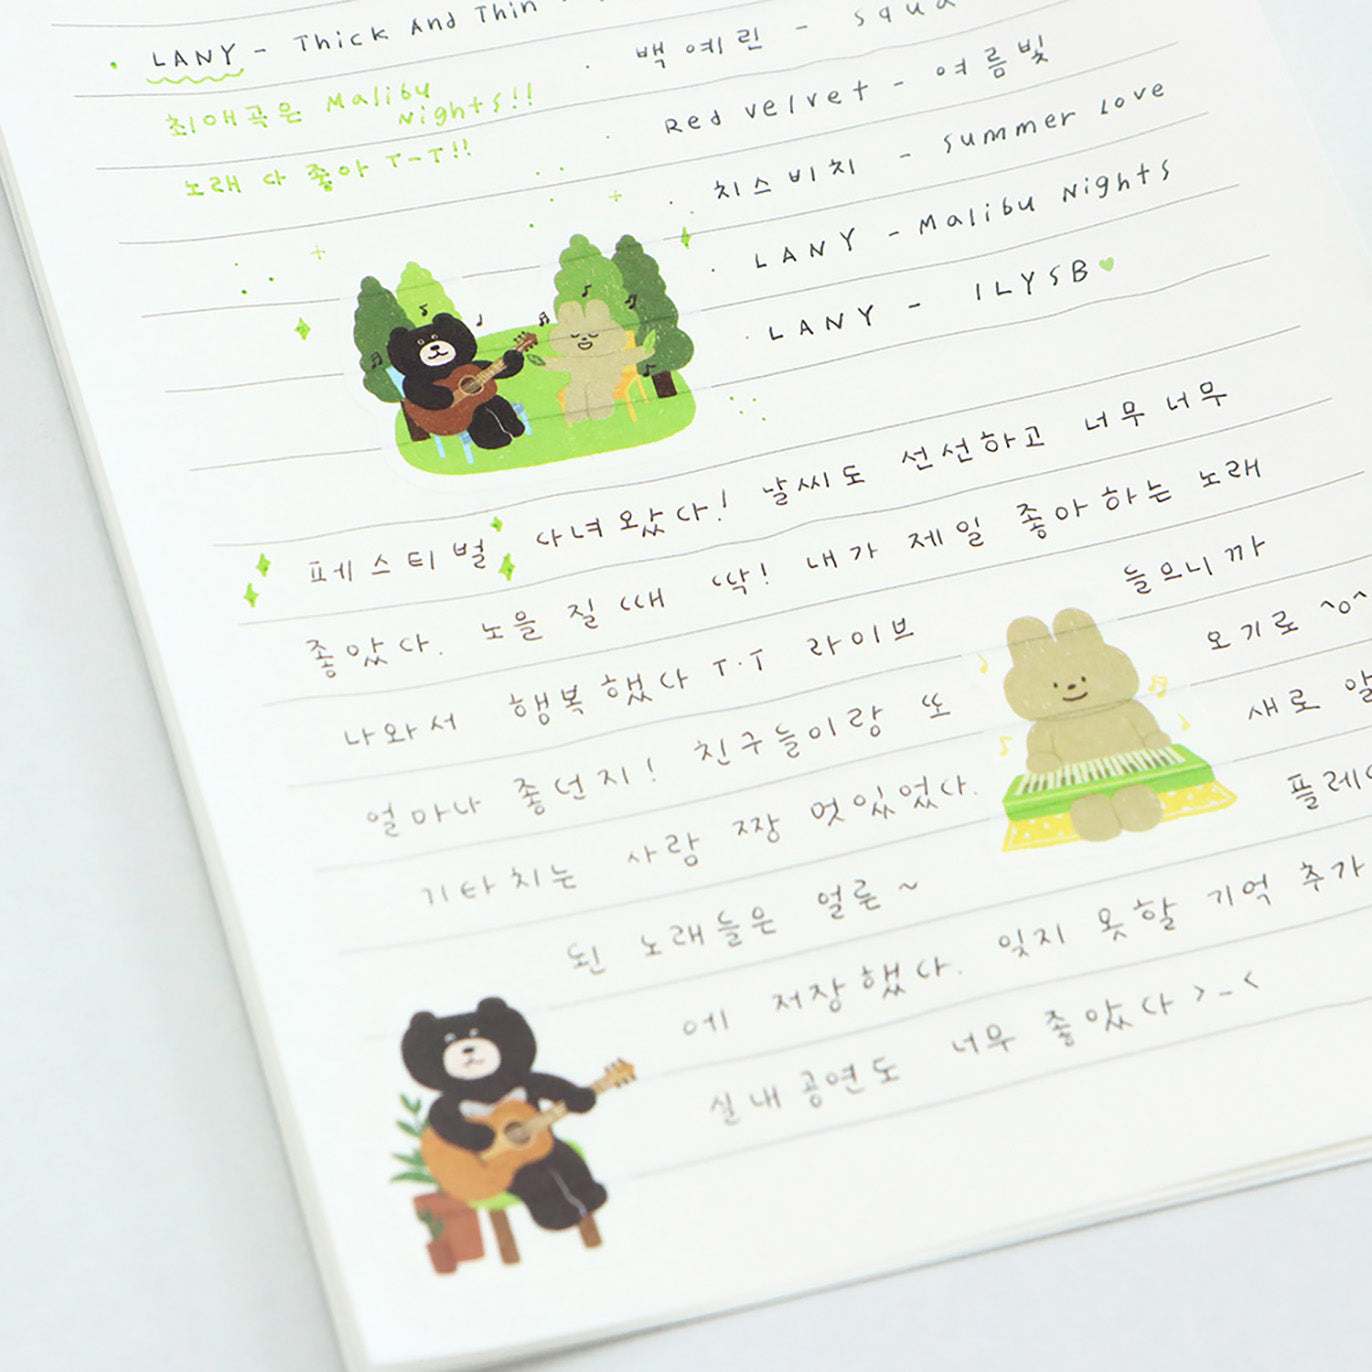 · LANY - Thick And Thin
최애곡은 Malibu
Nights!!
노래 다 좋아 T-T!!
· 백예린 -
· Red velvet - 여름빛
· 치스비치 - summer love
· LANY - Malibu Nights
· LANY - ILYSB
페스티벌 다녀왔다! 날씨도 선선하고 너무너무
좋았다. 노을 질 때 딱! 내가 제일 좋아하는 노래
나와서 행복했다 T.T 라이브 들으니까
얼마나 좋던지! 친구들이랑 또 오기로 ^o^
기타치는 사람 짱 멋있었다. 새로
된 노래들은 얼른~
에 저장했다. 잊지 못할 기억 추가
실내공연도 너무 좋았다 >-<